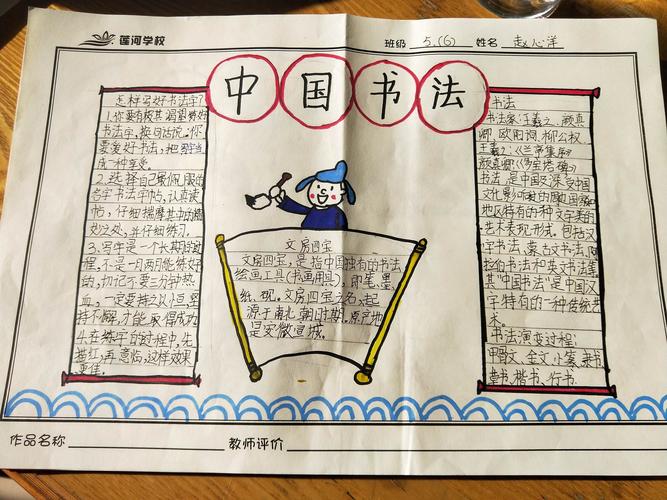 莲河学校
班级 5.(6) 姓名 赵心洋
中国书法
怎样写好书法字?
1.你要有极其渴望练好
书法字,换句话说:你
要爱好书法,把
成一种享受。
2.选择自己最佩服的
名字书法字帖,认真读
帖,仔细揣摩其中的精
妙之处,并仔细练习。
3.写字是一个长期的过
程,不是一月两月能练好
的,切记不要三分钟热
血,一定要持之以恒,坚
持不懈,才能取得成功
4.在练字的时程中,先
描红,再意临,这样效果
更佳。
文房四宝
文房四宝,是指中国独有的书法
绘画工具(书画用具),即笔、墨、
纸、砚。文房四宝之名,起
源于南北朝时期。原产地
是安徽宣城。
书法
书法家:王羲之、颜真
卿、欧阳询、柳公权
王羲之:《兰亭集序》
颜真卿:《多宝塔碑》
书法是中国及深受中国
文化影响的周国
地区特有的种文字美的
艺术表现形式。包括汉
字书法、蒙古文书法、阿
拉伯书法和英文书法等
其"中国书法"是中国汉
字特有的一种传统艺
术。
书法演变过程:
甲骨文、金文、小篆、隶书、
草书、楷书、行书.
作品名称
教师评价